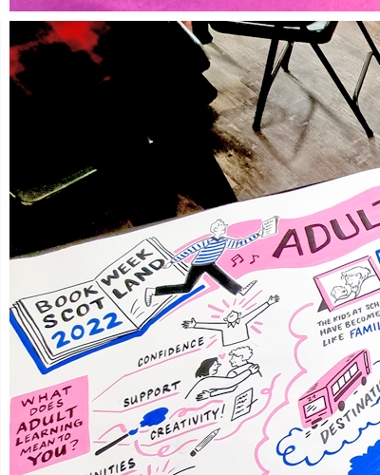 BOOK WEEK
SCOTLAND
2022
ADULT
THE KIDS AT SCH
HAVE BECOME
LIKE FAMI
CONFIDENCE
WHAT
DOES
ADULT
LEARNING
MEAN TO
YOU?
SUPPORT
CREATIVITY!
DESTINATI
NITIES